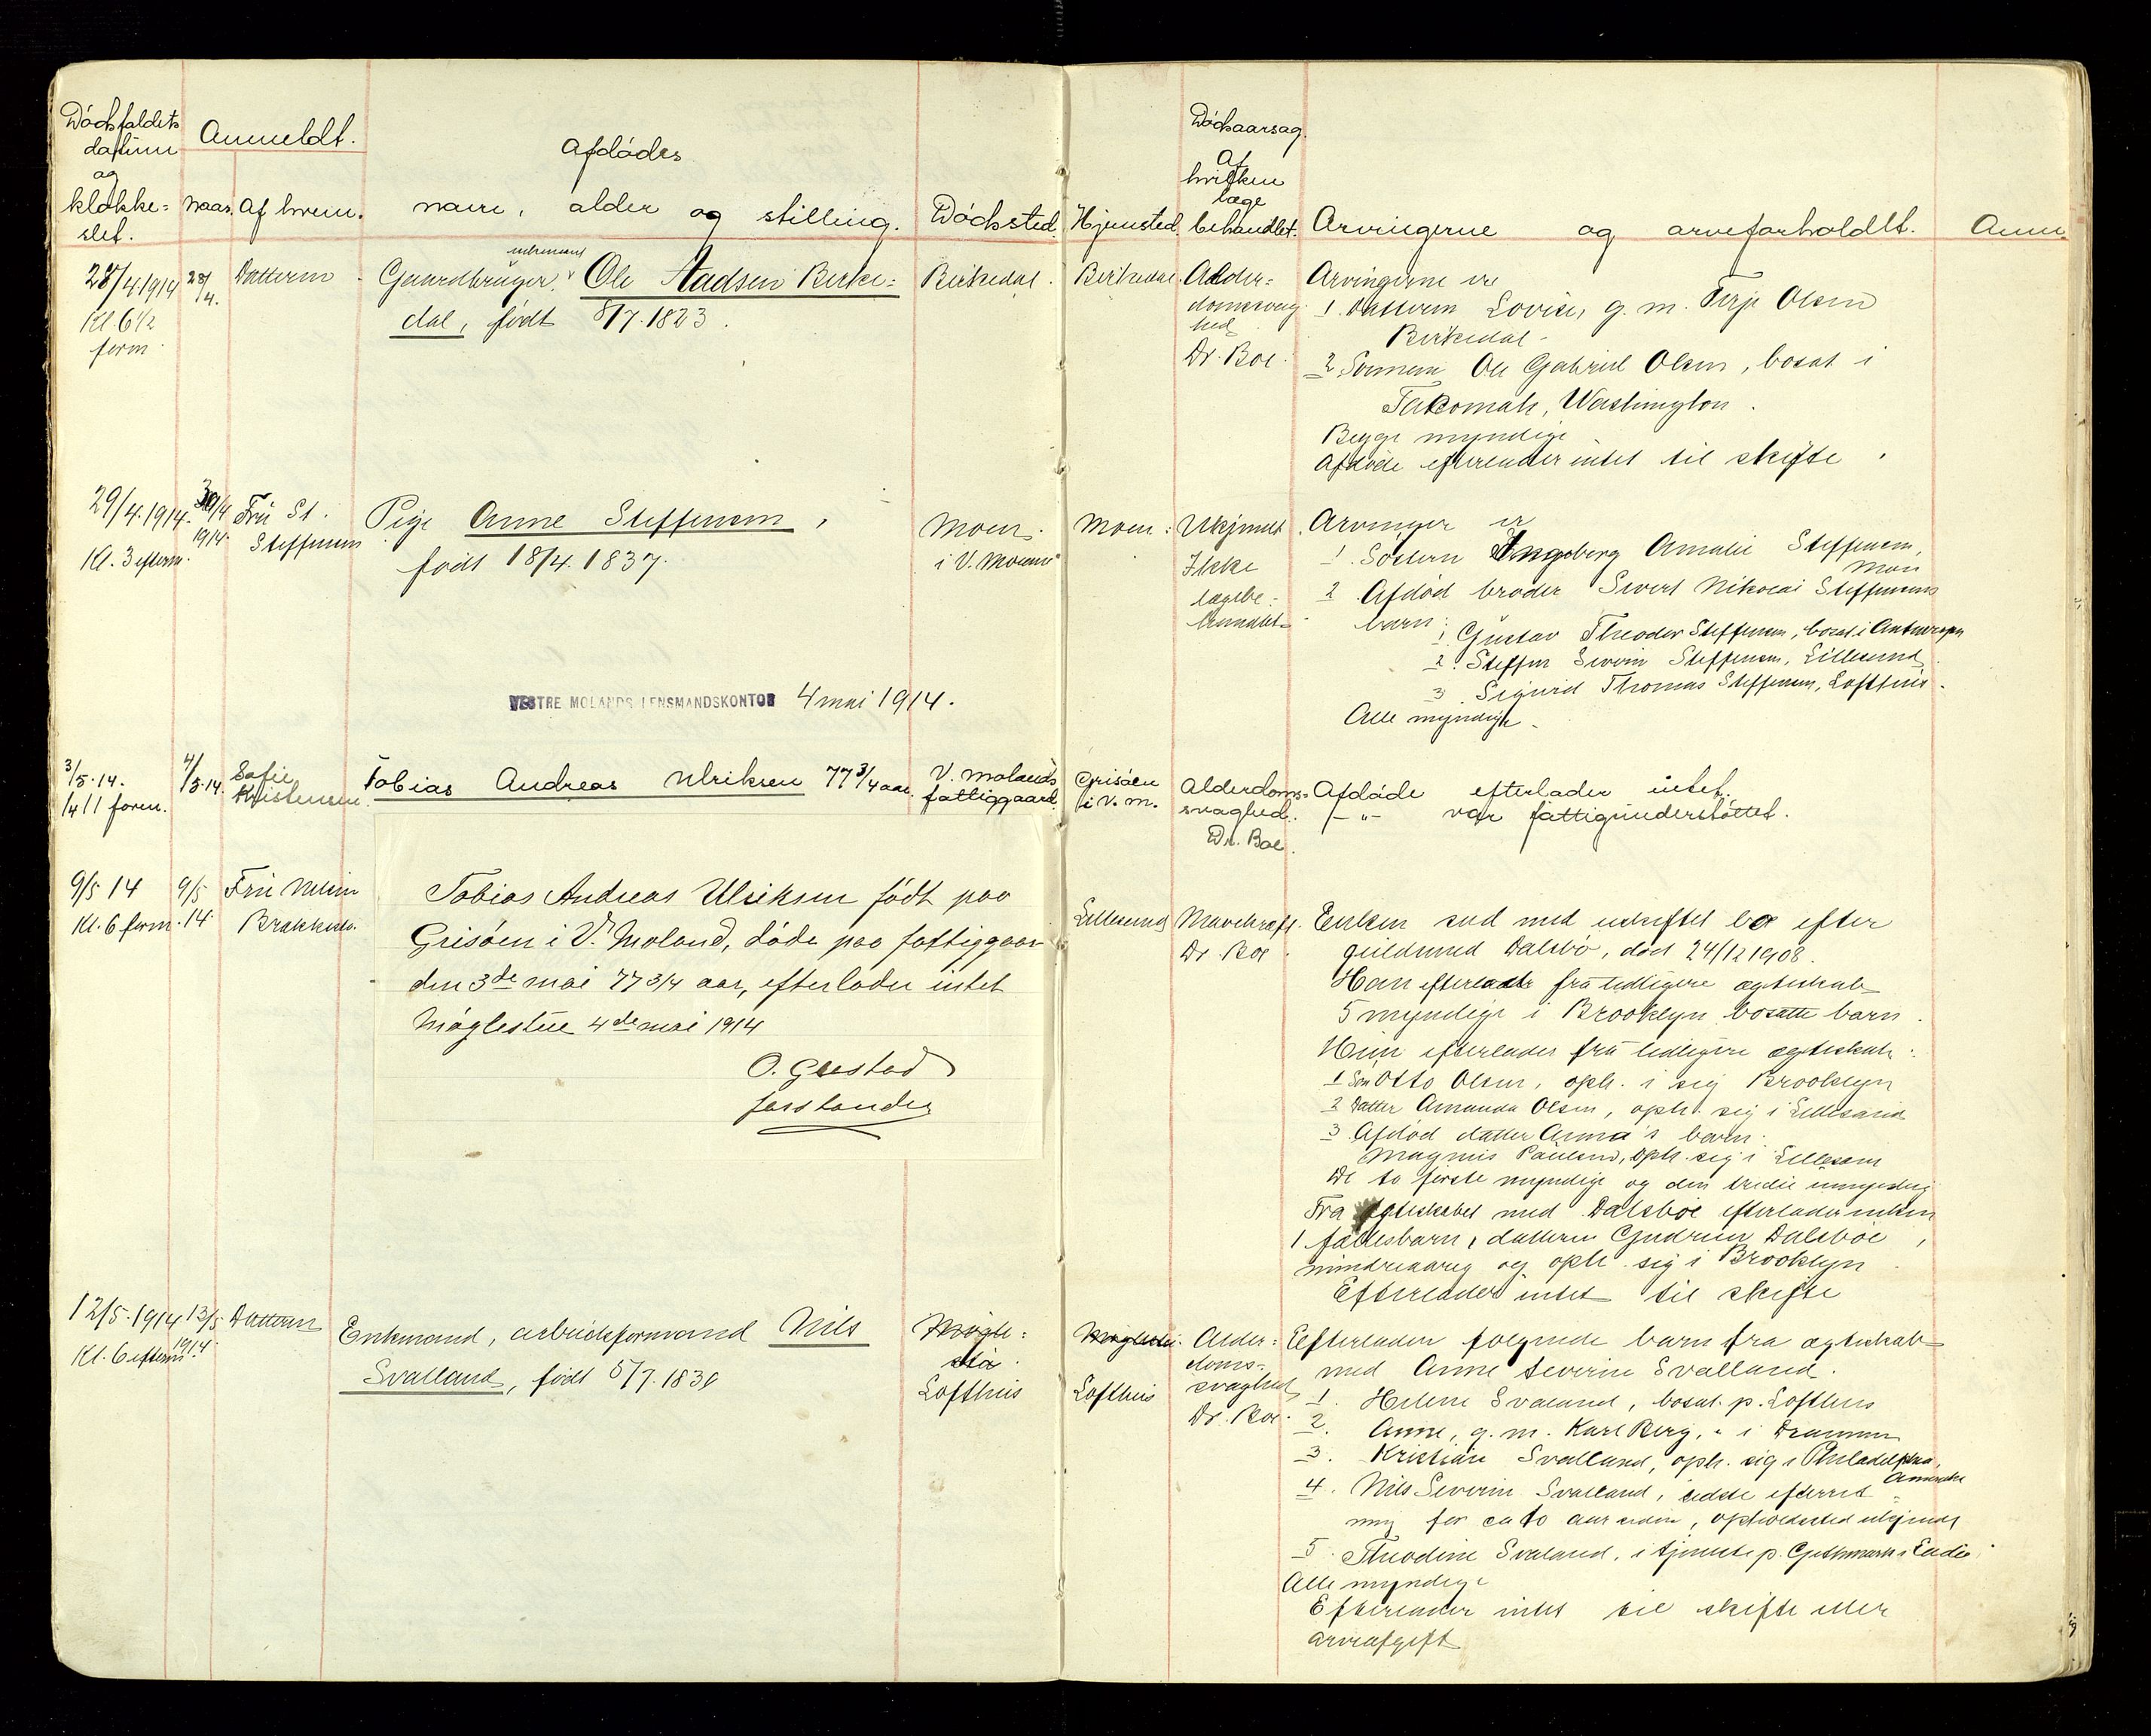 Dödsfaldets
datum
og
klokke=
slet.
Anmeldt.
Naar.
Af hvem.
Afdödes
navn, alder og stilling.
Dödssted.
Hjemsted.
Dödsaarsag.
Af
hvilken
læge
behandlet.
Arvingerne og arveforholdet.
Anm.
28/4 1914
Kl. 6 1/2
form
28/4.
Datteren
enkemand
Gaardbruger Ole Aadsen Birke=
dal, födt 8/7. 1823.
Birkedal.
Birkedal.
Alder=
domssvag
hed
Dr. Boe.
Arvingerne er
1. Datteren Lovise, g. m. Terje Olsen
Birkedal -
2 Sönnen Ole Gabriel Olsen, bosat i
Takomah, Washington.
Begge myndige
Afdöde efterlader intet til skifte.
29/4. 1914.
Kl. 3 efterm.
30/4
1914.
Fru St.
Steffensen
Pige Anne Steffensen,
födt 18/4. 1837.
Moen.
i V. Moland
Moen.
Ukjendt
Ikke
lægebe-
handlet
Arvinger er
1. Söstern Ingeborg Amalie Steffensen,
Moen
2 Afdöd broder Sivert Nikolai Steffensens
barn:
1 Gustav Theodor Steffensen, bosat i Antwerpen
2. Steffen Severin Steffensen, Lillesand
3 Sigurd Thomas Steffensen, Lofthus.
Alle myndige.
VESTRE MOLANDS LENSMANDSKONTOR 4 mai 1914.
3/5.14.
1/4 11 form.
4/5.14.
Sofie
Kristensen.
Tobias Andreas Ulriksen 77 3/4 aar.
V. Molands
fattiggaard.
Grisöen
i V. M.
Alderdoms=
svaghed.
Dr. Boe.
Afdöde efterlader intet.
-„- var fattigunderstöttet.
Tobias Andreas Ulriksen födt paa
Grisöen i V. Moland, döde paa fattiggaar
den 3de mai 77 3/4 aar, efterlader intet
Möglestue 4de mai 1914
O. Grestad
forstander
9/5 14
Kl. 6 form.
9/5
14.
Fru
Lillesand
Mavekræft.
Dr. Boe.
Enken sad med uskiftet bo efter
guldsmed Dalsbö, död 24/12 1908.
Han efterlader fra tidligere ægteskab
5 myndige i Brooklyn bosatte barn.
Hun efterlader fra tidligere ægteskab:
1 Sön Otto Olsen, oph. i sig Brooklyn
2 Datter Amanda Olsen, oph. sig i Lillesand
3. Afdöd datter Anna's barn:
Magnus Paulsen, oph. sig i Lillesand
De to förste myndige og den tredie umyndig
Fra ægteskabet med Dalsböe efterlader enken
1 fællesbarn, datteren Gudrun Dalsböe,
mindreaarig og oph. sig i Brooklyn
Efterlader intet til skifte
12/5. 1914
Kl. 6 efterm
13/5
1914.
Datteren
Enkmand, arbeidsformand Nils
Svalland, födt 5/7. 1830
Mögle=
stu.
Lofthus
Möglestu.
Lofthus
Alder=
doms=
svaghed
Dr. Boe.
Efterlader fölgende barn fra ægteskab
med Anne Severine Svalland.
1. Helene Svaland, bosat. p. Lofthus
2. Anne, g. m. Karl Berg, " i Drammen
3. Kristian Svalland, oph. sig i Philadelphia,
Amerika
4. Nils Severin Svalland, sidste efterret=
ning for ca 10 aar siden, opholdssted ukjendt
5. Theodine Svaland, i tjeneste p.
Alle myndige
Efterlader intet til skifte eller
arveafgift